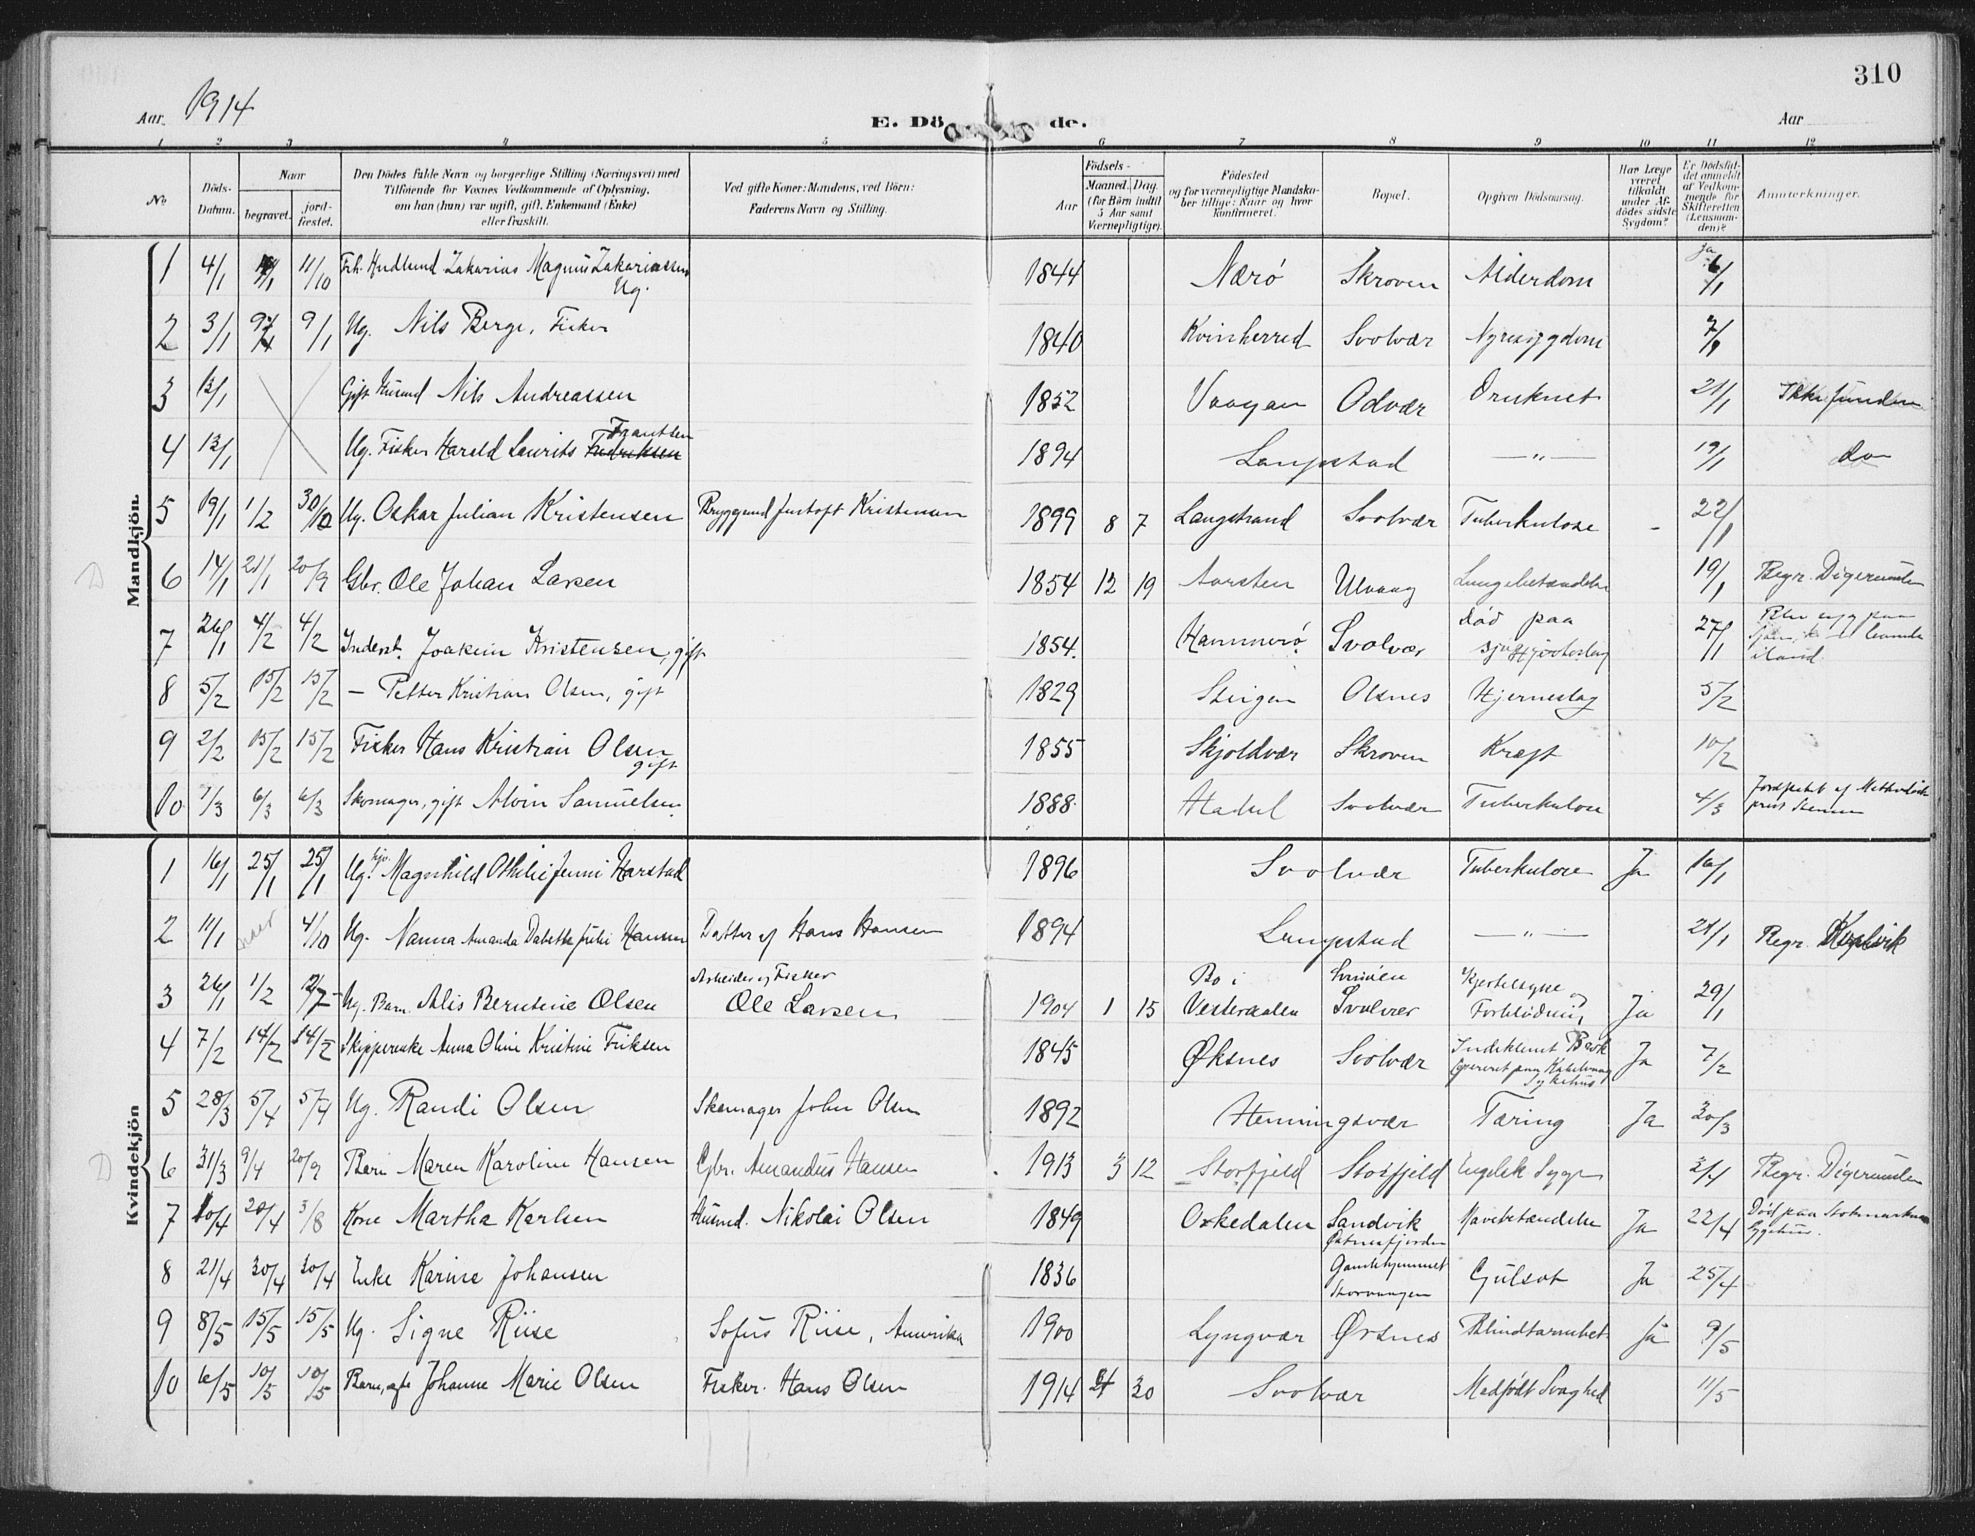 310
Aar 1914
E. Dö de.
Aar
1 2 3 4 5 6 7 8 9 10 11 12
No
Döds-Datum.
Naar
begravet.
jord-fæstet.
Den Dödes fulde Navn og borgerlige Stilling (Næringsvei) med
Tilföiende for Voxnes Vedkommende af Oplysning,
om han (hun) var ugift, gift, Enkemand (Enke)
eller fraskilt.
Ved gifte Koner: Mandens, ved Börn:
Faderens Navn og Stilling.
Födsels-
Aar
Maaned. Dag.
(for Börn indtil
5 Aar samt
Værnepligtige).
Födested
og for værnepligtige Mandska-
ber tillige: Naar og hvor
konfirmeret.
Bopæl.
Opgiven Dödsaarsag.
Har Læge
været
tilkaldt
under Af-
dödes sidste
Sygdom?
Er Dödsfal-
det anmeldt
af Vedkom-
mende for
Skifteretten
(Lensman-
den)?
Anmærkninger.
Mandkjön.
1 4/1 11/10 Zakarias Magnus Zakariassen Ug. 1844 Nærö Skroven Alderdom Ja 6/1
2 3/1 9/1 Ug. Nils Berge, Fisker 1840 Kvinherred Svolvær Nyresygdom 7/1
3 12/1 Gift Husmd Nils Andreassen 1852 Vaagan Odvær Druknet 21/1 Ikke funden
4 12/1 Ug. Fisker Harald Laurits Fredriksen Frantsen 1894 Laupstad — " — 19/1 do
5 19/1 1/2 30/10 Ug. Oskar Julian Kristensen Bryggemd Justoft Kristensen 1899 8 7 Langstrand Svolvær Tuberkulose - 22/1
D 6 14/1 21/1 20/9 Gbr. Ole Johan Larsen 1854 12 19 Aarsten Ulvaag Lungebetændelse 19/1 Begr. Digermulen
7 26/1 4/2 4/2 Inderst. Joakim Kristensen, gift 1854. Hammerö Svolvær Död paa sjöen, 27/1 iland.
8 5/2 15/2 15/2 — Petter Kristian Olsen, gift 1829 Steigen Olsnes Hjerneslag 5/2
9 2/2 15/2 15/2 Fisker Hans Kristian Olsen gift 1855 Skjoldvær Skroven Kræft 10/2
10 1/3 6/3 6/3 Skomager, gift Alvin Samuelsen 1888. Hadsel Svolvær Tuberkulose 4/3 Jordfæstet af Methodist-
Kvindekjön
1 16/1 25/1 25/1 Ug. Magnhild Othilie Jenni Harstad 1896 Svolvær Tuberkulose Ja 16/1
2 11/1 4/10 Ug. Nanna Amanda Hansen Datter af Hans Hansen 1894 Laupstad — " — 21/1 Begr.
3 26/1 1/2 Ug. Barn. Alis Berntine Olsen Arbeider og Fisker Ole Larsen 1904 1 15 Bo i Vesteraalen Svinöen Svolvær Kjertelsyge og Forblödning Ja 29/1
4 7/2 14/2 14/2 Skipperenke Anna Oline Kristine Eriksen 1845 Øksnes Svolvær Indeklemt Brok Opereret paa Kabelvaag Sykehus Ja 7/2
5 28/3 5/4 5/4 Ug. Randi Olsen Skomager John Olsen 1892 Henningsvær Tæring Ja 30/3
D 6 31/3 9/4 20/9 Barn Maren Karoline Hansen Gbr. Amandus Hansen 1913 3 12 Storfjeld Storfjeld Engelsk Syge 2/4 Begr. Digermulen
7 10/4 20/4 3/8 Kone Martha Karlsen Husmd. Nikolai Olsen 1849 Orkedalen Sandvik Østnesfjorden Mavebetændelse Ja 22/4 Död paa Stokmarknes Sygehus.
8 21/4 30/4 30/4 Enke Karine Johansen 1836 Gamlehjemmet Storvaagen Gulsot Ja 25/4
9 8/5 15/5 15/5 Ug. Signe Riise Sofus Riise, Amerika 1900 Lyngvær Ørsnes Blindtarmbet Ja 9/5
10 6/5 10/5 10/5 Barn, Johanne Marie Olsen Fisker. Hans Olsen 1914 4 30 Svolvær Medfödt Svaghed 11/5